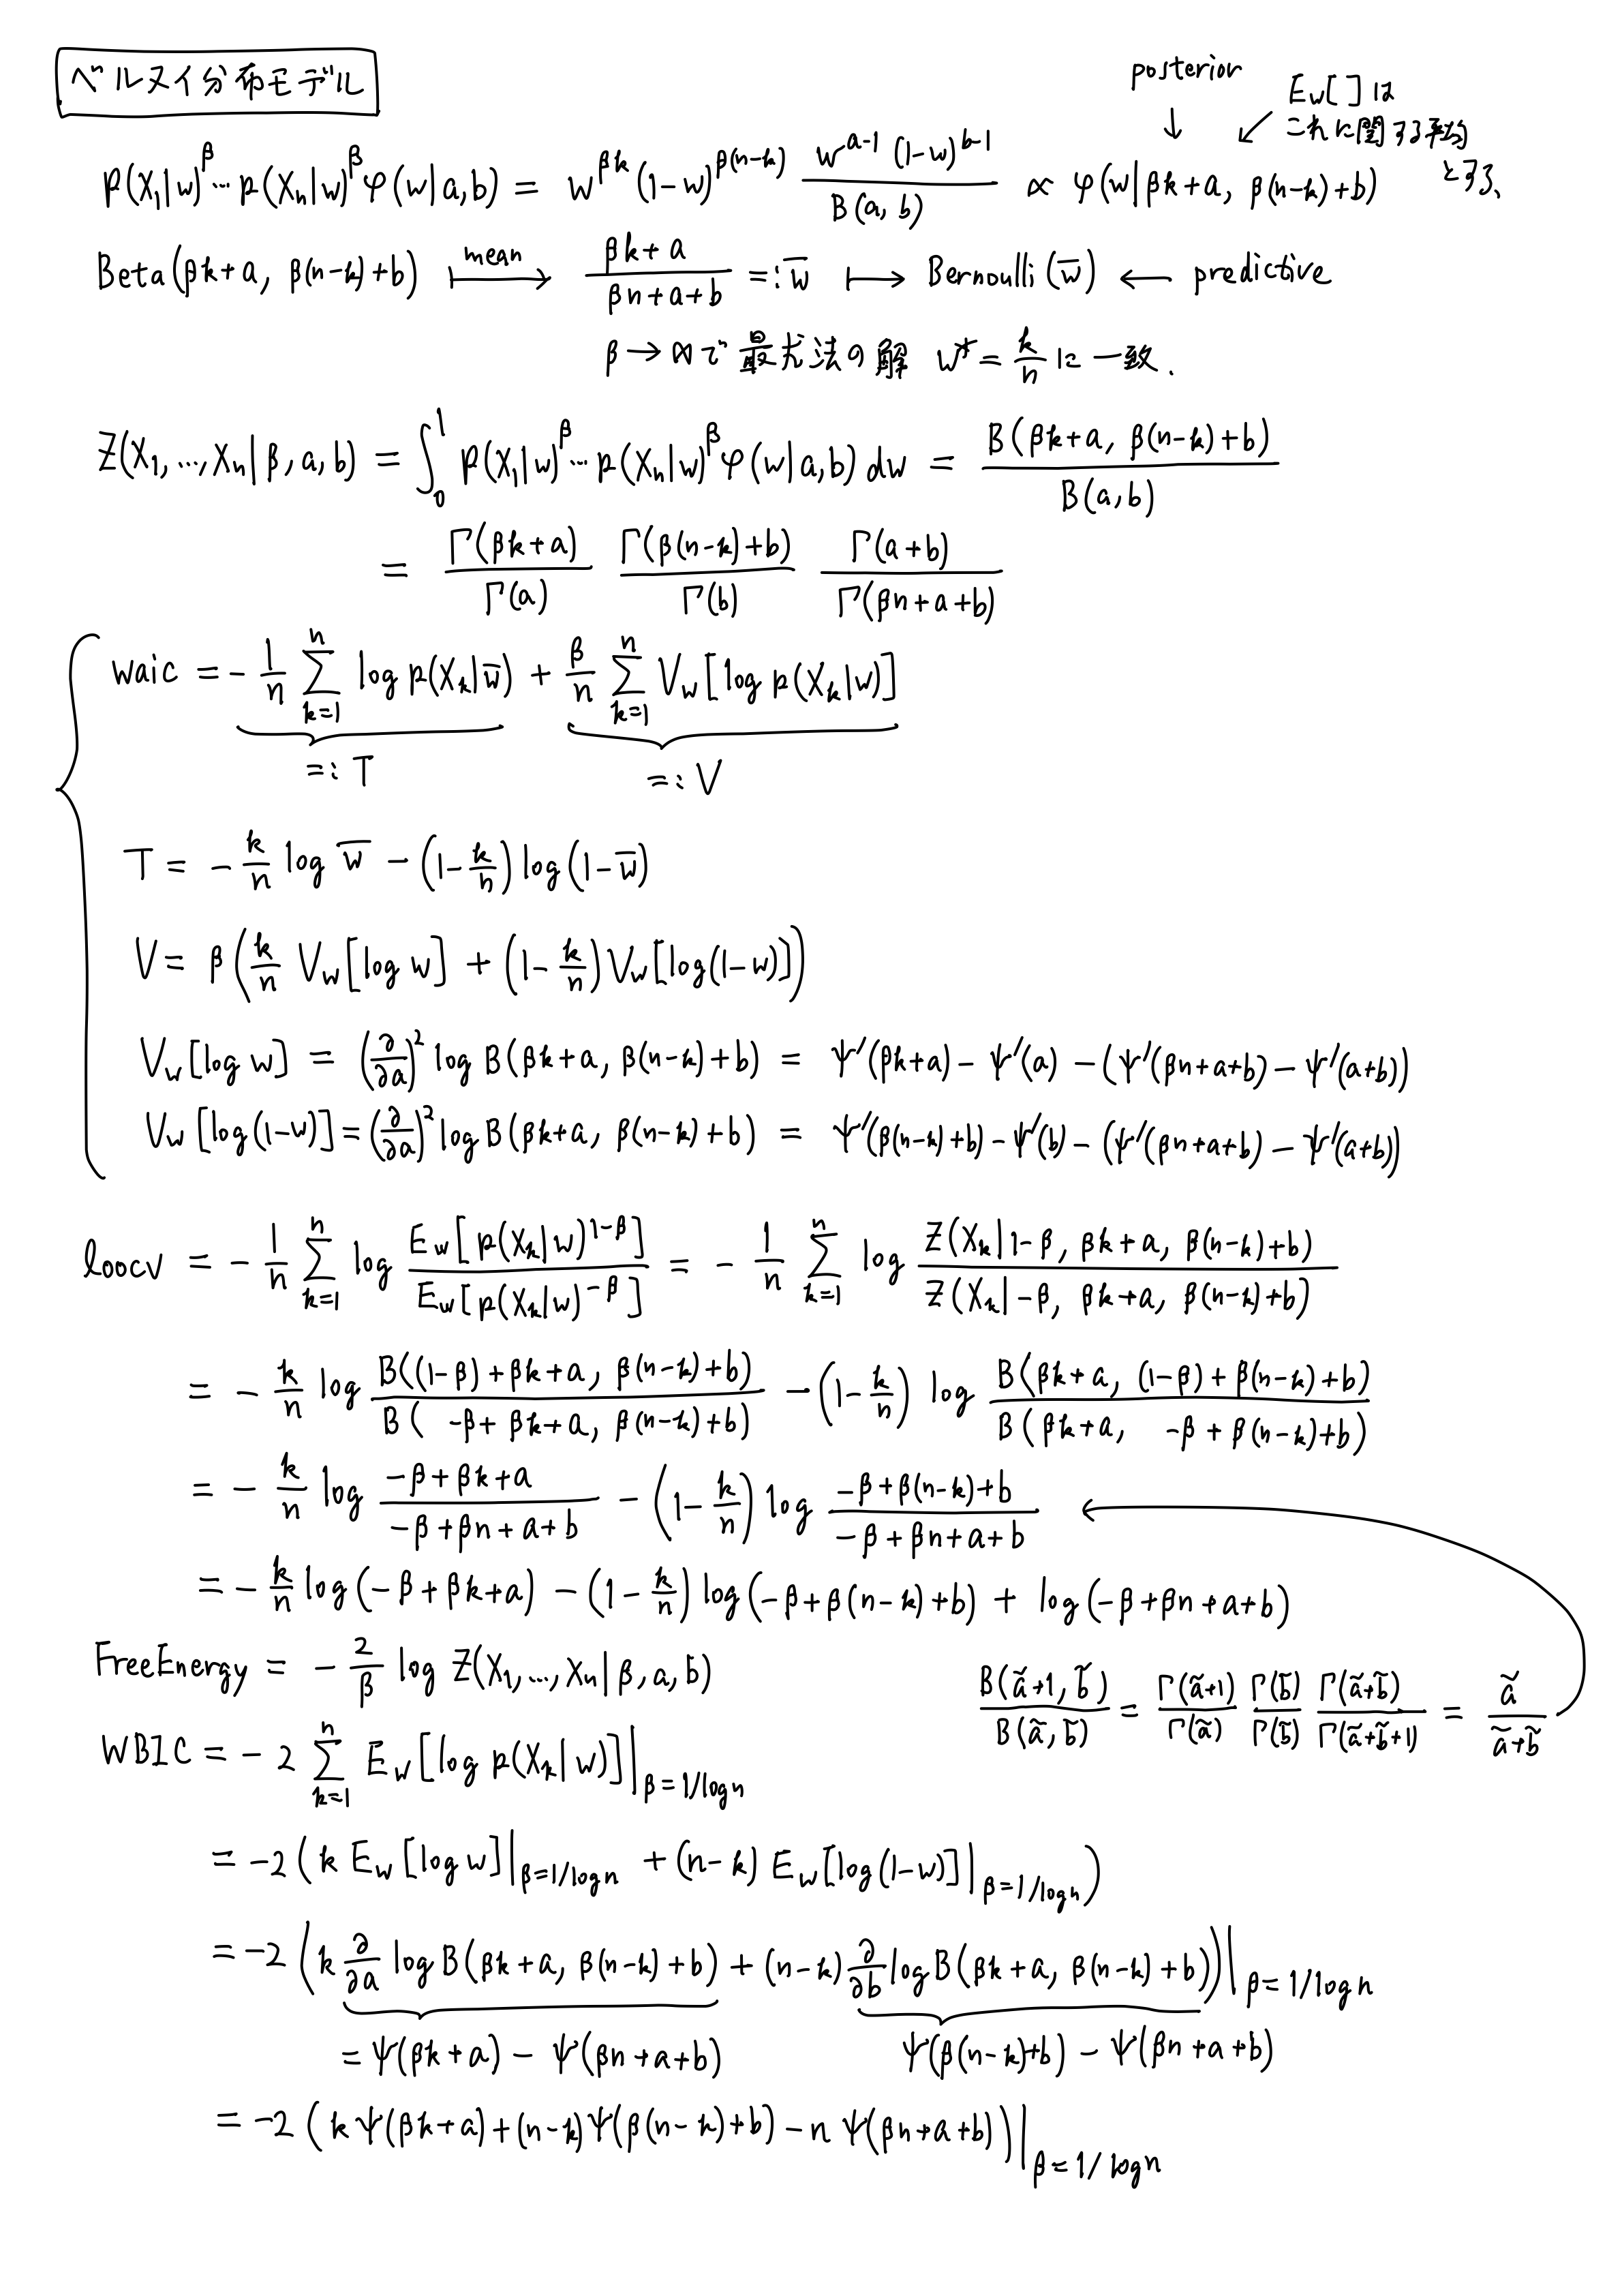 ベルヌイ分布モデル
posterior
↓
↙ E_w[ ]は
これに関する平均
とする、
p(X_1|w)^β … p(X_n|w)^β φ(w|a,b) = w^{βk} (1-w)^{β(n-k)} \frac{w^{a-1} (1-w)^{b-1}}{B(a,b)} ∝ φ(w|βk+a, β(n-k)+b)
Beta(βk+a, β(n-k)+b) \overset{mean}{⟼} \frac{βk+a}{βn+a+b} =: \overline{w} ⟼ Bernoulli(\overline{w}) ← predictive
β→∞で最尤法の解 w* = \frac{k}{n} に一致.
Z(X_1,…,X_n|β,a,b) = ∫_0^1 p(X_1|w)^β … p(X_n|w)^β φ(w|a,b) dw = \frac{B(βk+a, β(n-k)+b)}{B(a,b)}
= \frac{Γ(βk+a)}{Γ(a)} \frac{Γ(β(n-k)+b)}{Γ(b)} \frac{Γ(a+b)}{Γ(βn+a+b)}
waic = -\frac{1}{n} \sum_{k=1}^{n} log p(X_k|\overline{w}) + \frac{β}{n} \sum_{k=1}^{n} V_w[log p(X_k|w)]
=: T =: V
T = -\frac{k}{n} log \overline{w} - (1-\frac{k}{n}) log(1-\overline{w})
V = β(\frac{k}{n} V_w[log w] + (1-\frac{k}{n}) V_w[log(1-w)])
V_w[log w] = (\frac{∂}{∂a})^2 log B(βk+a, β(n-k)+b) = ψ'(βk+a) - ψ'(a) - (ψ'(βn+a+b) - ψ'(a+b))
V_w[log(1-w)] = (\frac{∂}{∂a})^2 log B(βk+a, β(n-k)+b) = ψ'(β(n-k)+b) - ψ'(b) - (ψ'(βn+a+b) - ψ'(a+b))
loocv = -\frac{1}{n} \sum_{k=1}^{n} log \frac{E_w[p(X_k|w)^{1-β}]}{E_w[p(X_k|w)^{-β}]} = -\frac{1}{n} \sum_{k=1}^{n} log \frac{Z(X_k|1-β, βk+a, β(n-k)+b)}{Z(X_k|-β, βk+a, β(n-k)+b)}
= -\frac{k}{n} log \frac{B((1-β)+βk+a, β(n-k)+b)}{B( -β+βk+a, β(n-k)+b)} - (1-\frac{k}{n}) log \frac{B(βk+a, (1-β)+β(n-k)+b)}{B(βk+a, -β+β(n-k)+b)}
= -\frac{k}{n} log \frac{-β+βk+a}{-β+βn+a+b} - (1-\frac{k}{n}) log \frac{-β+β(n-k)+b}{-β+βn+a+b} ←
= -\frac{k}{n} log(-β+βk+a) - (1-\frac{k}{n}) log(-β+β(n-k)+b) + log(-β+βn+a+b)
FreeEnergy = -\frac{2}{β} log Z(X_1,…,X_n|β,a,b)
\frac{B(\tilde{a}+1, \tilde{b})}{B(\tilde{a}, \tilde{b})} = \frac{Γ(\tilde{a}+1)}{Γ(\tilde{a})} \frac{Γ(\tilde{b})}{Γ(\tilde{b})} \frac{Γ(\tilde{a}+\tilde{b})}{Γ(\tilde{a}+\tilde{b}+1)} = \frac{\tilde{a}}{\tilde{a}+\tilde{b}}
WBIC = -2 \sum_{k=1}^{n} E_w[log p(X_k|w)]|_{β=1/log n}
= -2(k E_w[log w]|_{β=1/log n} + (n-k) E_w[log(1-w)]|_{β=1/log n})
= -2(k \frac{∂}{∂a} log B(βk+a, β(n-k)+b) + (n-k) \frac{∂}{∂b} log B(βk+a, β(n-k)+b))|_{β=1/log n}
= ψ(βk+a) - ψ(βn+a+b) ψ(β(n-k)+b) - ψ(βn+a+b)
= -2(k ψ(βk+a) + (n-k) ψ(β(n-k)+b) - n ψ(βn+a+b))|_{β=1/log n}